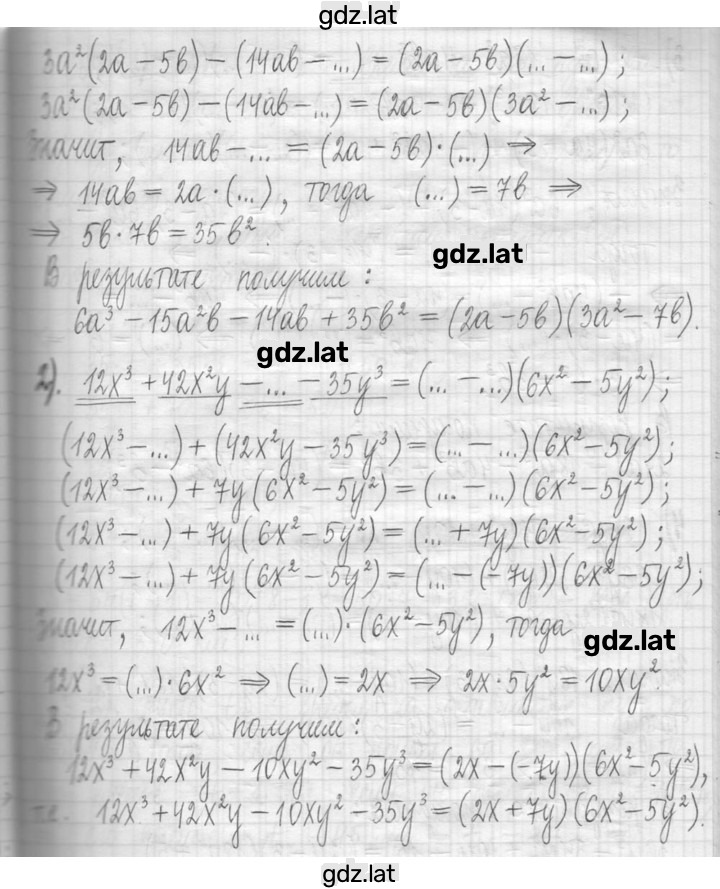 gdz.lat
3a²(2a − 5в) − (14aв − ...) = (2a − 5в)(... − ...);
3a²(2a − 5в) − (14aв − ...) = (2a − 5в)(3a² − ...);
Значит, 14aв − ... = (2a − 5в)·(...) ⇒
⇒ 14aв = 2a·(...), тогда (...) = 7в ⇒
⇒ 5в·7в = 35в².
gdz.lat
В результате получим:
6a³ − 15a²в − 14aв + 35в² = (2a − 5в)(3a² − 7в).
gdz.lat
2). 12x³ + 42x²y − ... − 35y³ = (... − ...)(6x² − 5y²);
(12x³ − ...) + (42x²y − 35y³) = (... − ...)(6x² − 5y²);
(12x³ − ...) + 7y(6x² − 5y²) = (... − ...)(6x² − 5y²);
(12x³ − ...) + 7y(6x² − 5y²) = (... + 7y)(6x² − 5y²);
(12x³ − ...) + 7y(6x² − 5y²) = (... − (−7y))(6x² − 5y²);
Значит, 12x³ − ... = (...)·(6x² − 5y²), тогда
gdz.lat
12x³ = (...)·6x² ⇒ (...) = 2x ⇒ 2x·5y² = 10xy².
В результате получим:
12x³ + 42x²y − 10xy² − 35y³ = (2x − (−7y))(6x² − 5y²),
т.е. 12x³ + 42x²y − 10xy² − 35y³ = (2x + 7y)(6x² − 5y²).
gdz.lat